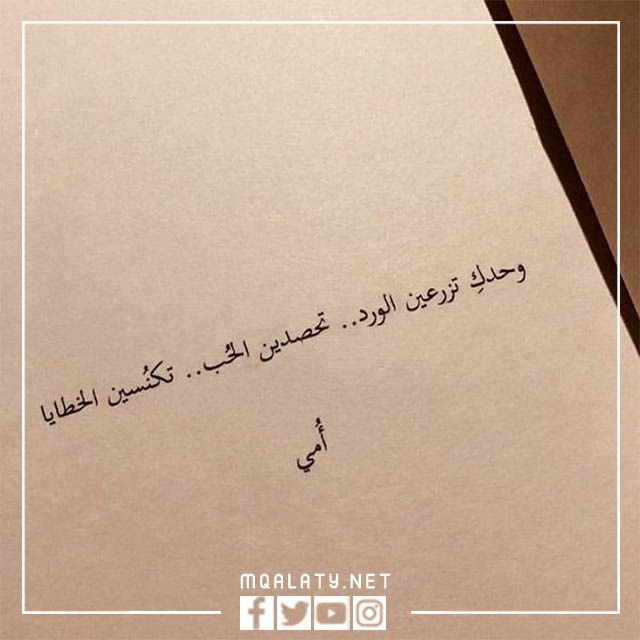 وحدكِ تزرعين الورد.. تحصدين الحُب.. تكنُسين الخطايا
أُمي
MQALATY.NET